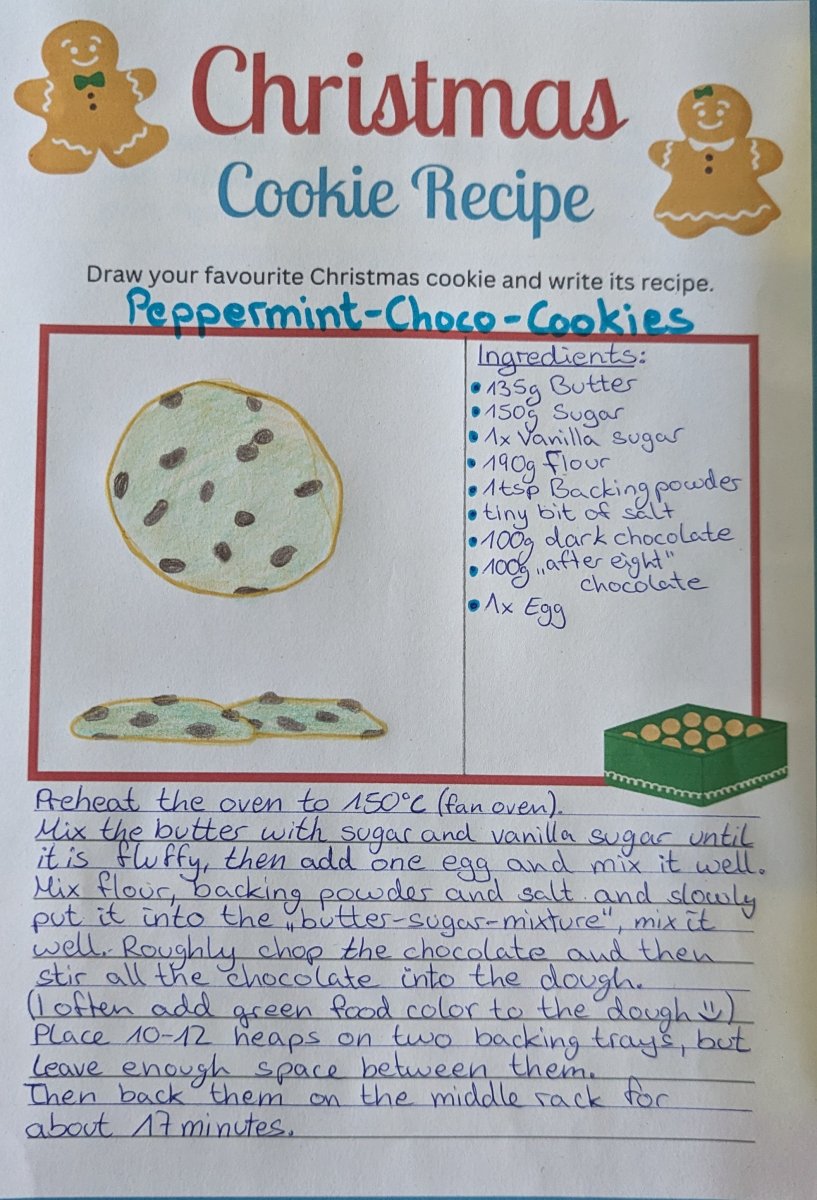 Christmas
Cookie Recipe
Draw your favourite Christmas cookie and write its recipe.
Peppermint-Choco-Cookies
Ingredients:
• 135g Butter
• 150g Sugar
• 1x Vanilla sugar
• 190g flour
• 1tsp Backing powder
• tiny bit of salt
• 100g dark chocolate
• 100g „after eight"
chocolate
• 1x Egg
Preheat the oven to 150°C (fan oven).
Mix the butter with sugar and vanilla sugar until
it is fluffy, then add one egg and mix it well.
Mix flour, backing powder and salt and slowly
put it into the „butter-sugar-mixture", mix it
well. Roughly chop the chocolate and then
stir all the chocolate into the dough.
(I often add green food color to the dough☺)
Place 10-12 heaps on two backing trays, but
leave enough space between them.
Then back them on the middle rack for
about 17 minutes.